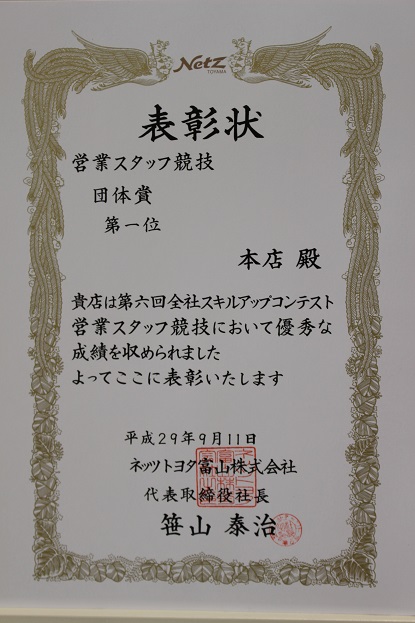 Netz
TOYAMA
表彰状
営業スタッフ競技
団体賞
第一位
本店 殿
貴店は第六回全社スキルアップコンテスト
営業スタッフ競技において優秀な
成績を収められました
よってここに表彰いたします
平成29年9月11日
ネッツトヨタ富山株式会社
代表取締役社長
笹山 泰治